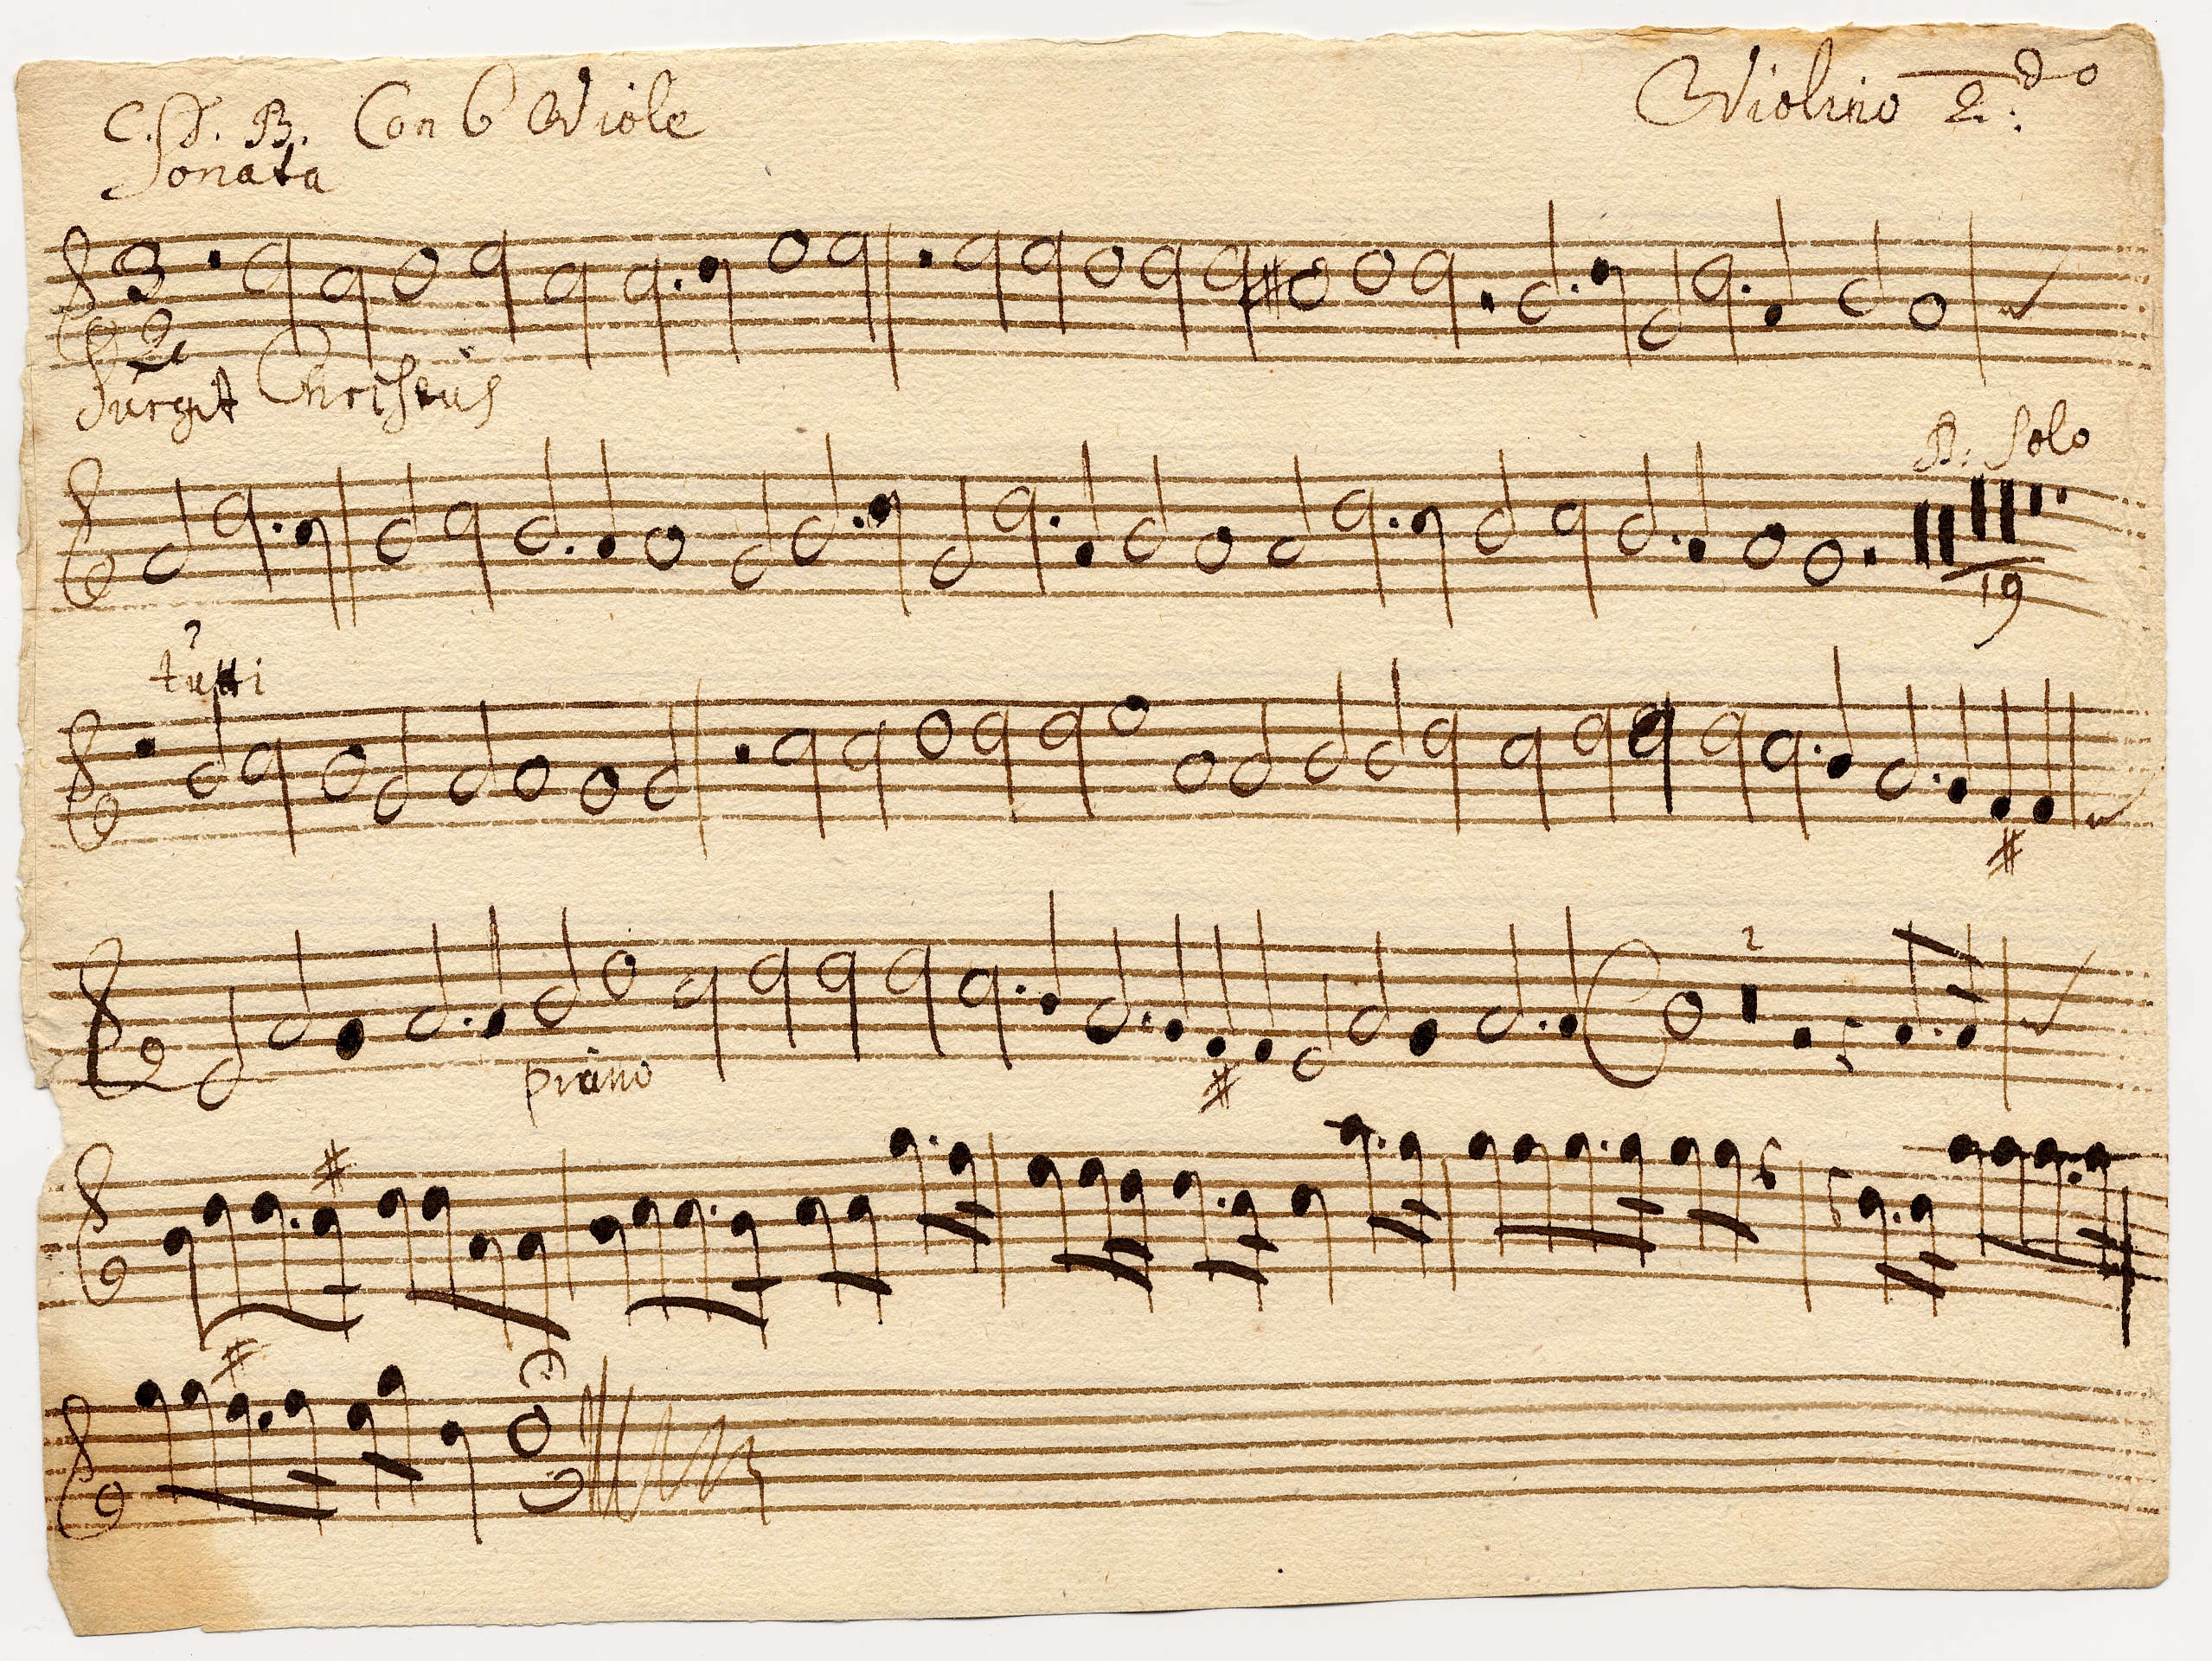 C. D. B. Con 6 Viole
Violino 2.do
Sonata
3
2
Surgit Christus
B: Solo
19
tutti
piano
2